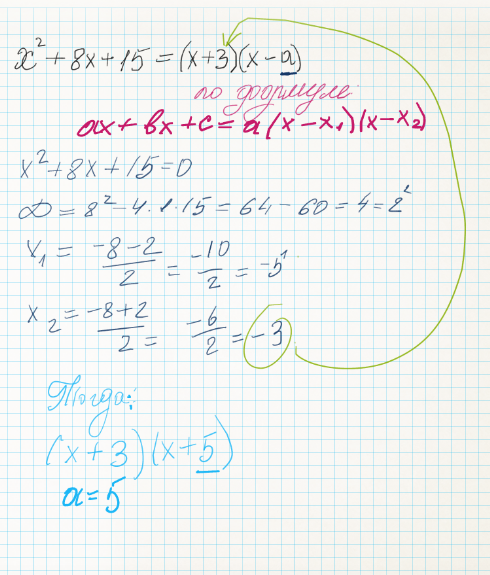 x² + 8x + 15 = (x+3)(x − a)
по формуле
ax + bx + c = a(x − x₁)(x − x₂)
x² + 8x + 15 = 0
D = 8² − 4·1·15 = 64 − 60 = 4 = 2²
x₁ = (−8−2)/2 = −10/2 = −5
x₂ = (−8+2)/2 = −6/2 = −3
Тогда:
(x + 3)(x + 5)
a = 5